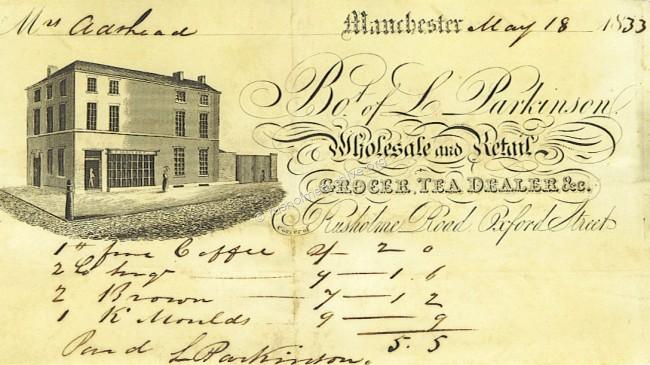 Mrs Adshead
Manchester May 18 1833
Bot. of L Parkinson
Wholesale and Retail
GROCER, TEA DEALER &c.
Corner of Rusholme Road, Oxford Street
1 fine Coffee 2/ 2 0
2 9 — 1. 6
2 Brown — 7 — 1 2
1 Moulds 9 — 9
5. 5
Paid L Parkinson.